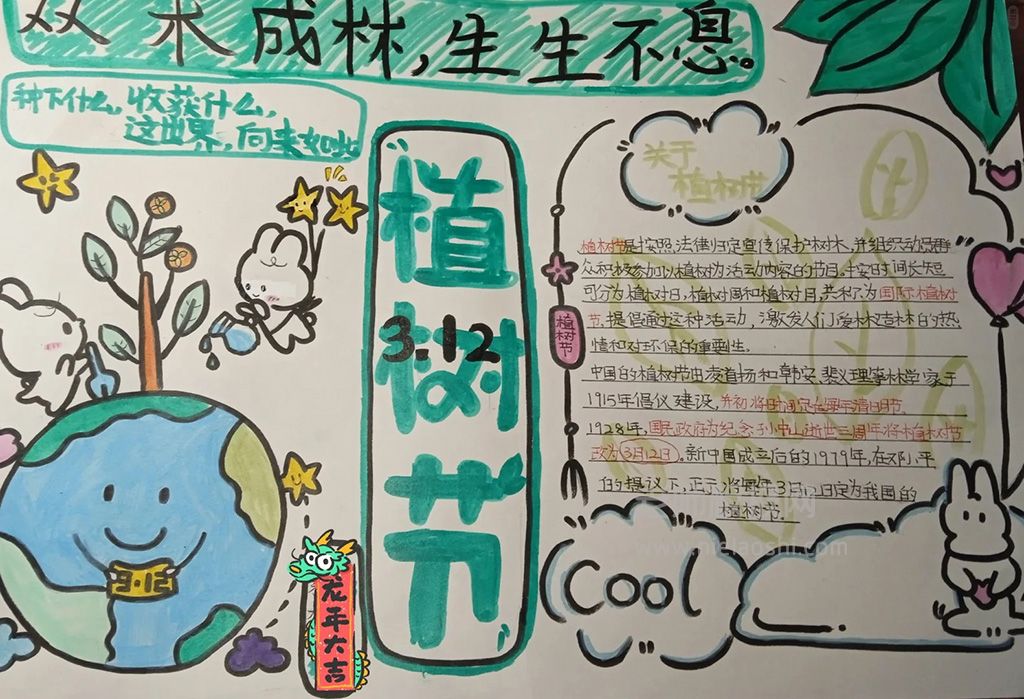 双木成林,生生不息。
种下什么,收获什么,
这世界,向来如此
植树节
3.12
关于
植树节
植树节是按照法律规定宣传保护树木,并组织动员群
众积极参加以植树为活动内容的节日。按时间长短
可分为植树日,植树周和植树月,共称为国际植树
节。提倡通过这种活动,激发人们爱林造林的热
情和对环保的重要性.
中国的植树节由凌道扬和韩安、裴义理等林学家于
1915年倡仪建设,并初将时间定在每年清明节.
1928年,国民政府为纪念孙中山逝世三周年将植树节
改为3月12日。新中国成立后的1979年,在邓小平
的提议下,正式将每年3月12日定为我国的
植树节.
植树节
3.12
龙年大吉
Cool